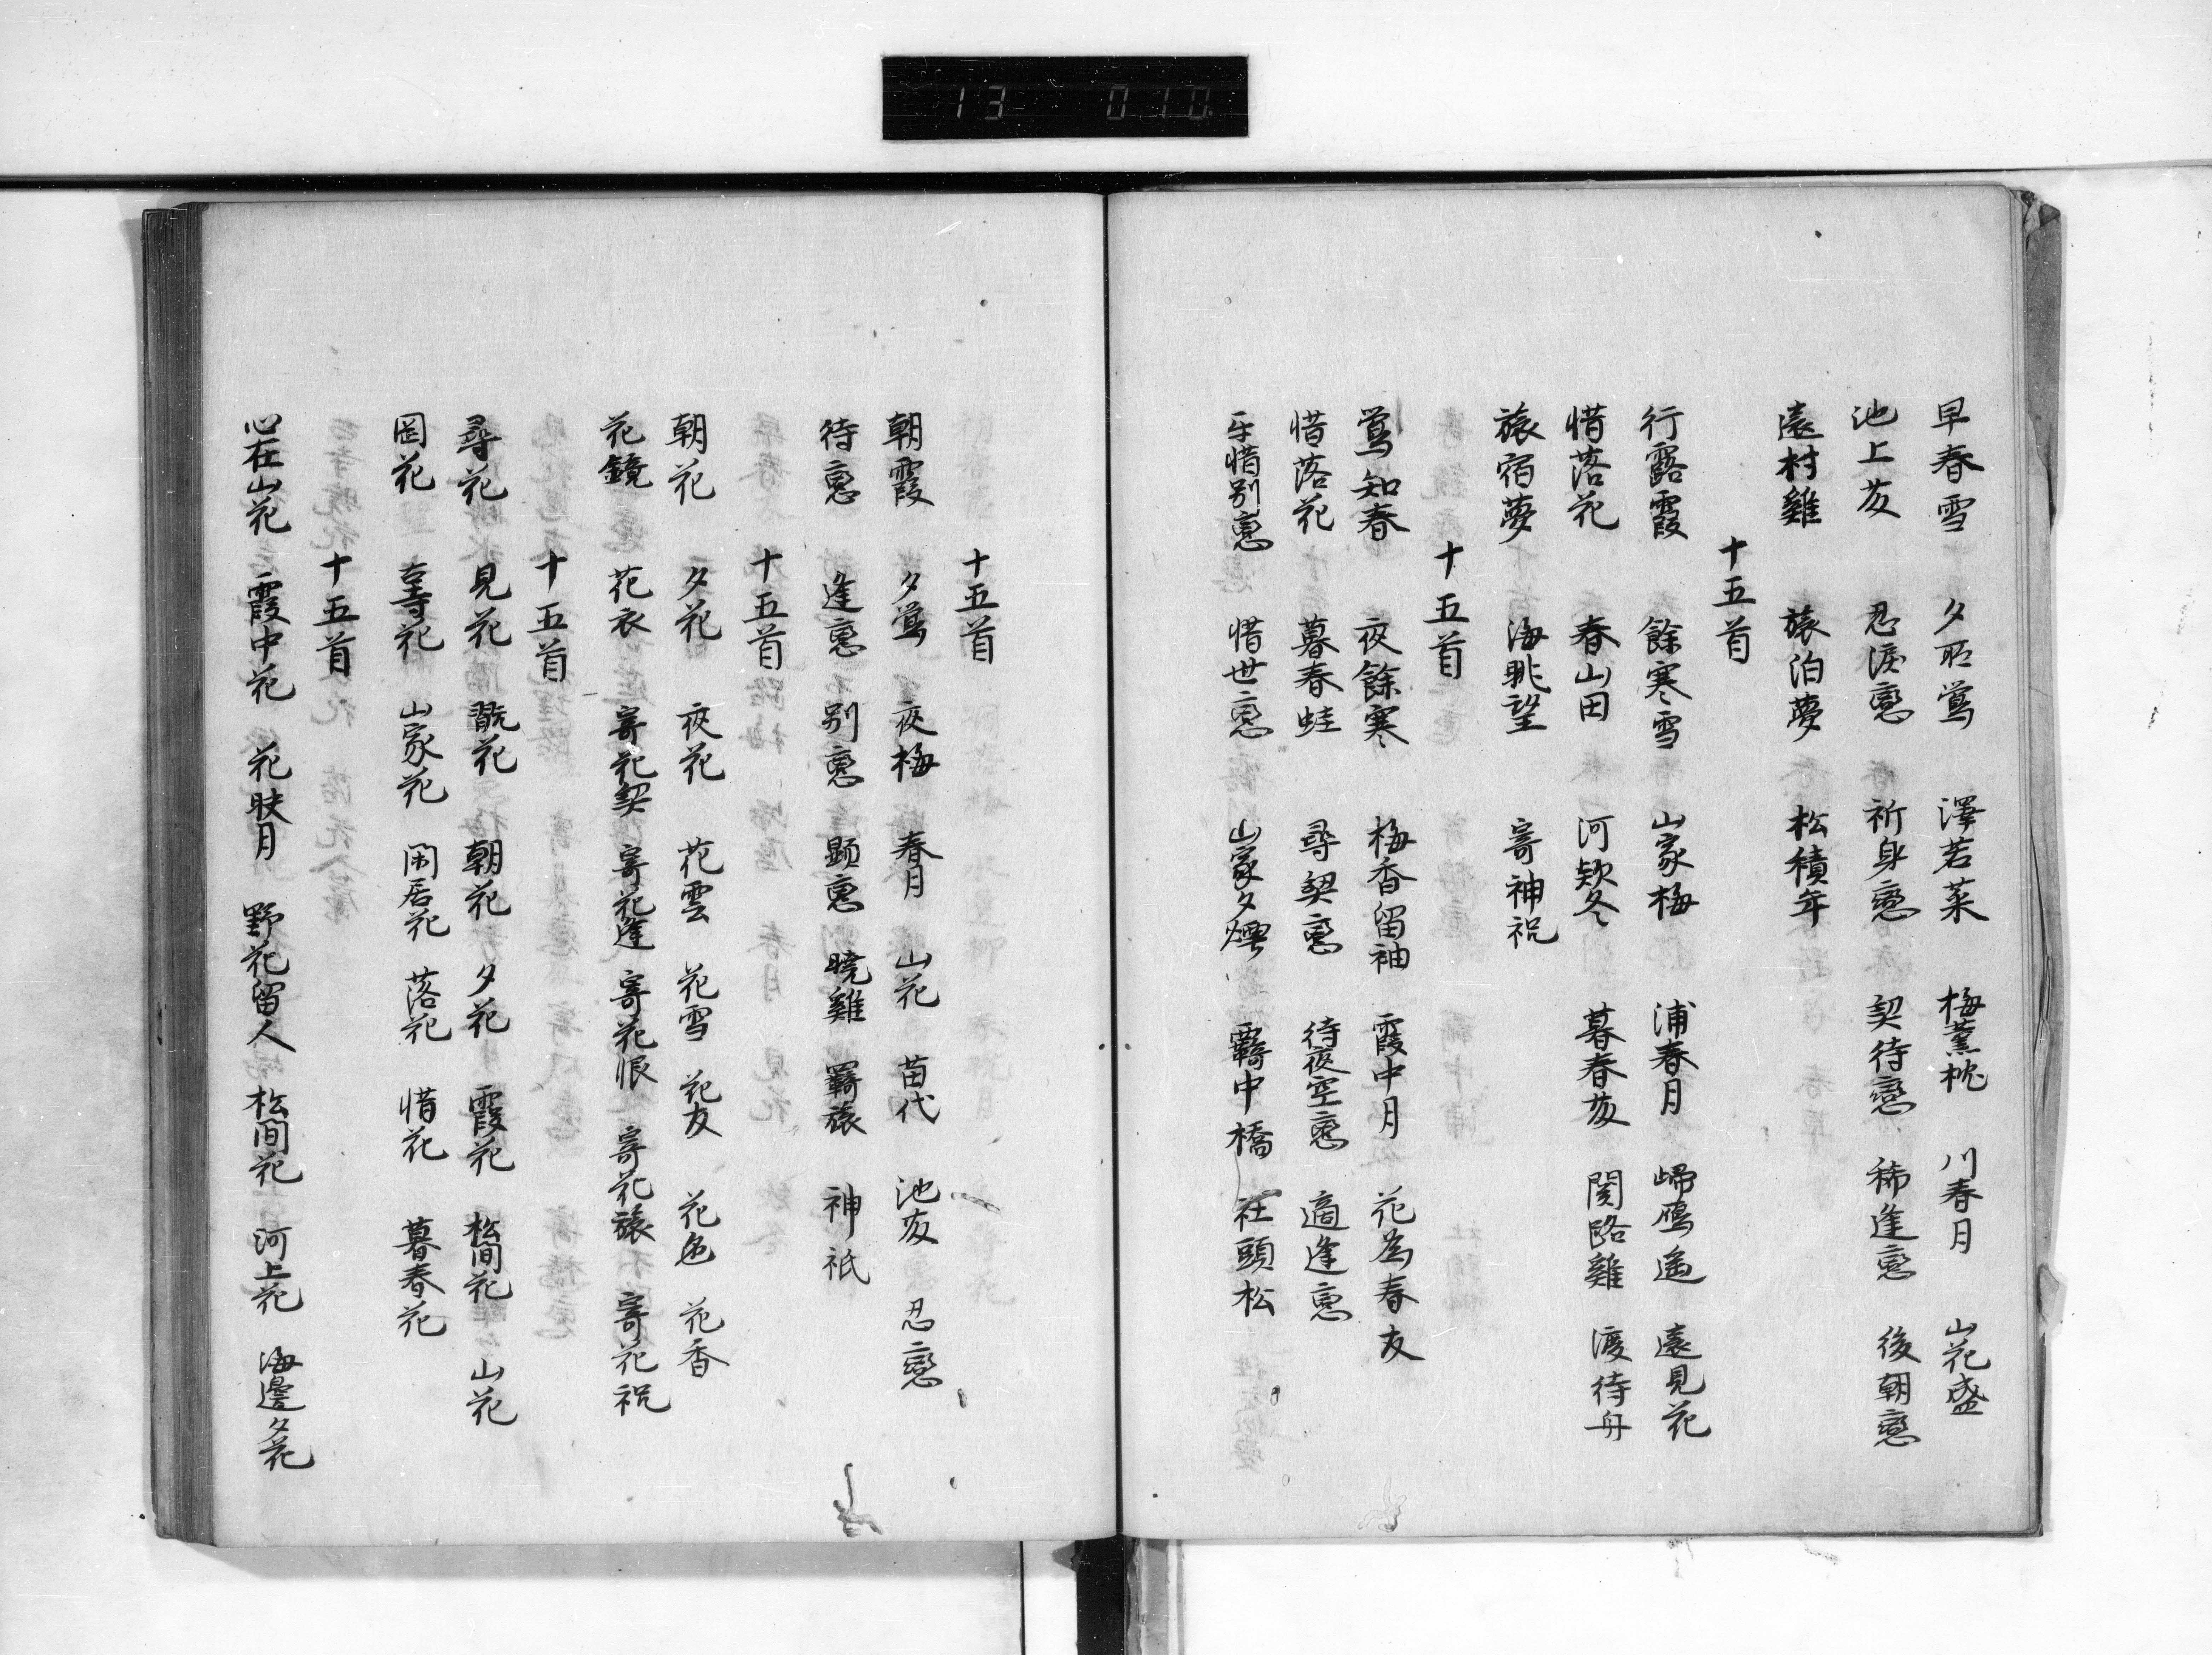 13 010
早春雪 夕聞鶯 澤若菜 梅薫枕 川春月 山花盛
池上藤 忍涙戀 祈身戀 契待戀 稀逢戀 後朝戀
遠村雞 旅泊夢 松積年
十五首
行露霞 餘寒雪 山家梅 浦春月 帰鴈遥 遠見花
惜落花 春山田 河欵冬 暮春藤 関路雞 渡待舟
旅宿夢 海眺望 寄神祝
十五首
鶯知春 夜餘寒 梅香留袖 霞中月 花為春友
惜落花 暮春蛙 尋契戀 待夜空戀 適逢戀
互惜別戀 惜世戀 山家夕煙 羇中橋 社頭松
十五首
朝霞 夕鶯 夜梅 春月 山花 苗代 池藤 忍戀
待戀 逢戀 別戀 顕戀 暁雞 羇旅 神祇
十五首
朝花 夕花 夜花 花雲 花雪 花友 花色 花香
花鏡 花衣 寄花契 寄花逢 寄花恨 寄花旅 寄花祝
十五首
尋花 見花 翫花 朝花 夕花 霞花 松間花 山花
岡花 寺花 山家花 閑居花 落花 惜花 暮春花
十五首
心在山花 霞中花 花映月 野花留人 松間花 河上花 海邊夕花